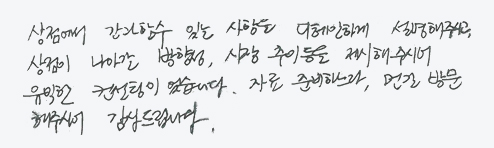 상점에서 간과할수 있는 사항을 디테일하게 설명해주시고,
상점이 나아갈 방향성, 시장 추이등을 제시해주시어
유익한 컨설팅이 었습니다. 자료 준비하느라, 먼길 방문
해주시어 감사드립니다.